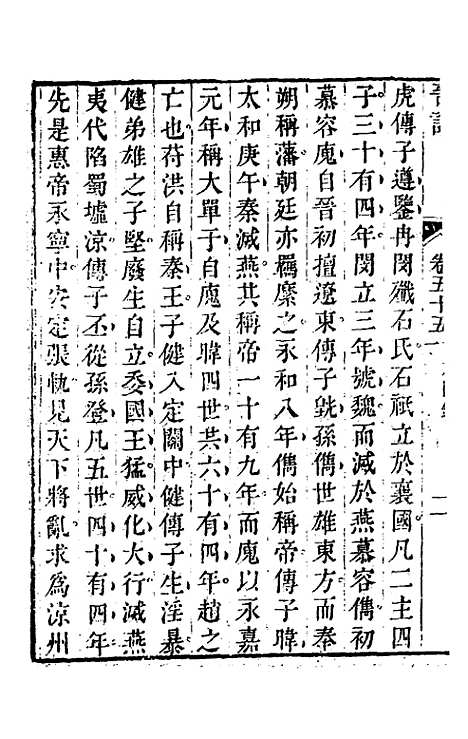 晉記
卷五十五
二
虎傳子遵鑒冉閔殲石氏石祗立於襄國凡二主四
子三十有四年閔立三年號魏而滅於燕慕容儁初
慕容廆自晉初擅遼東傳子皝孫儁世雄東方而奉
朔稱藩朝廷亦羈縻之永和八年儁始稱帝傳子暐
太和庚午秦滅燕共稱帝一十有九年而廆以永嘉
元年稱大單于自廆及暐四世共六十有四年趙之
亡也苻洪自稱秦王子健入定關中健傳子生淫暴
健弟雄之子堅廢生自立委國王猛威化大行滅燕
夷代陷蜀墟涼傳子丕從孫登凡五世四十有四年
先是惠帝永寧中安定張軌見天下將亂求為涼州